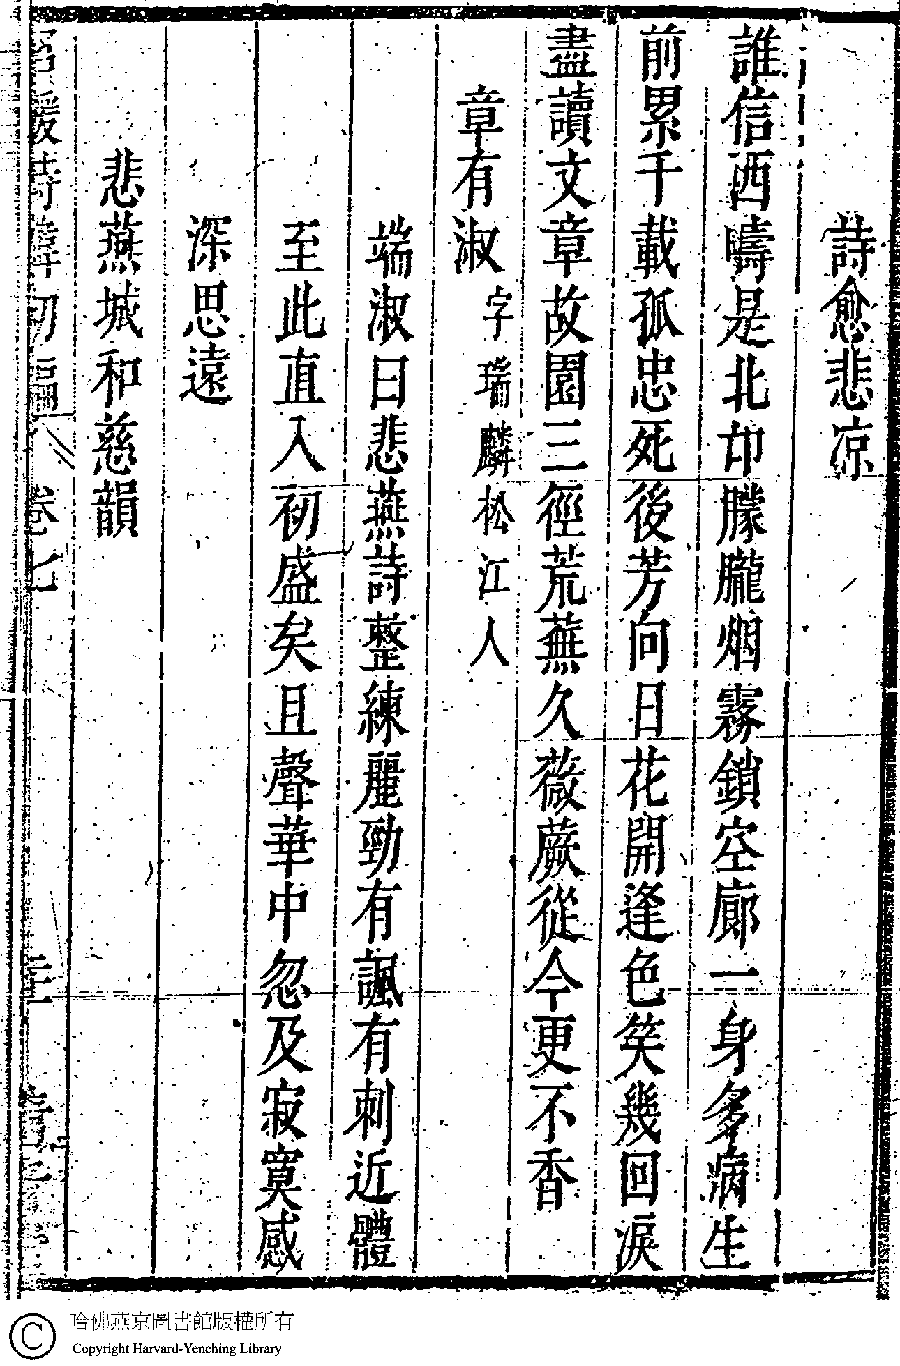 詩愈悲凉
誰信西疇是北邙朦朧烟霧鎖空廊一身多病生
前累千載孤忠死後芳向日花開逢色笑幾回淚
盡讀文章故園三徑荒蕪久薇蕨從今更不香
章有淑字瑞麟松江人
端淑曰悲燕詩整練麗勁有諷有刺近體
至此直入初盛矣且聲華中忽及寂寞感
深思遠
悲燕城和慈韻
名媛詩緯初編 卷七
哈佛燕京圖書館版權所有
Copyright Harvard-Yenching Library